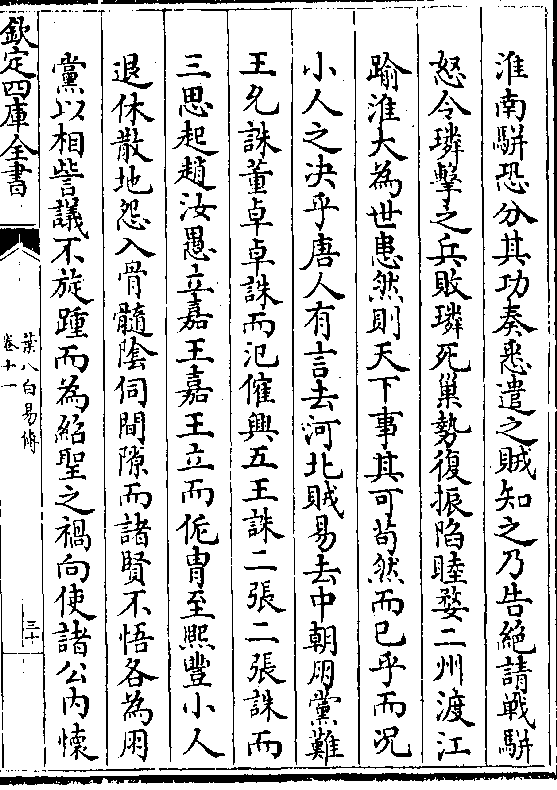 淮南駢恐分其功奏悉遣之賊知之乃告絶請戰駢
怒令璘擊之兵敗璘死巢勢復振陷睦婺二州渡江
踰淮大為世患然則天下事其可苟然而已乎而况
小人之决乎唐人有言去河北賊易去中朝朋黨難
王允誅董卓卓誅而汜傕興五王誅二張二張誅而
三思起趙汝愚立嘉王嘉王立而侂胄至熙豐小人
退休散地怨入骨髓陰伺間隙而諸賢不悟各為朋
黨以相訾議不旋踵而為紹聖之禍向使諸公内懐
欽定四庫全書
葉八白易傳
卷十一
三十